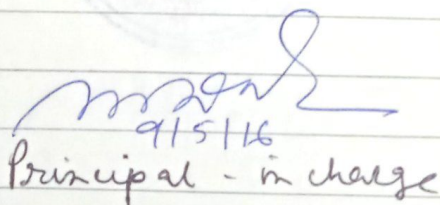 9/5/16
Principal - in charge